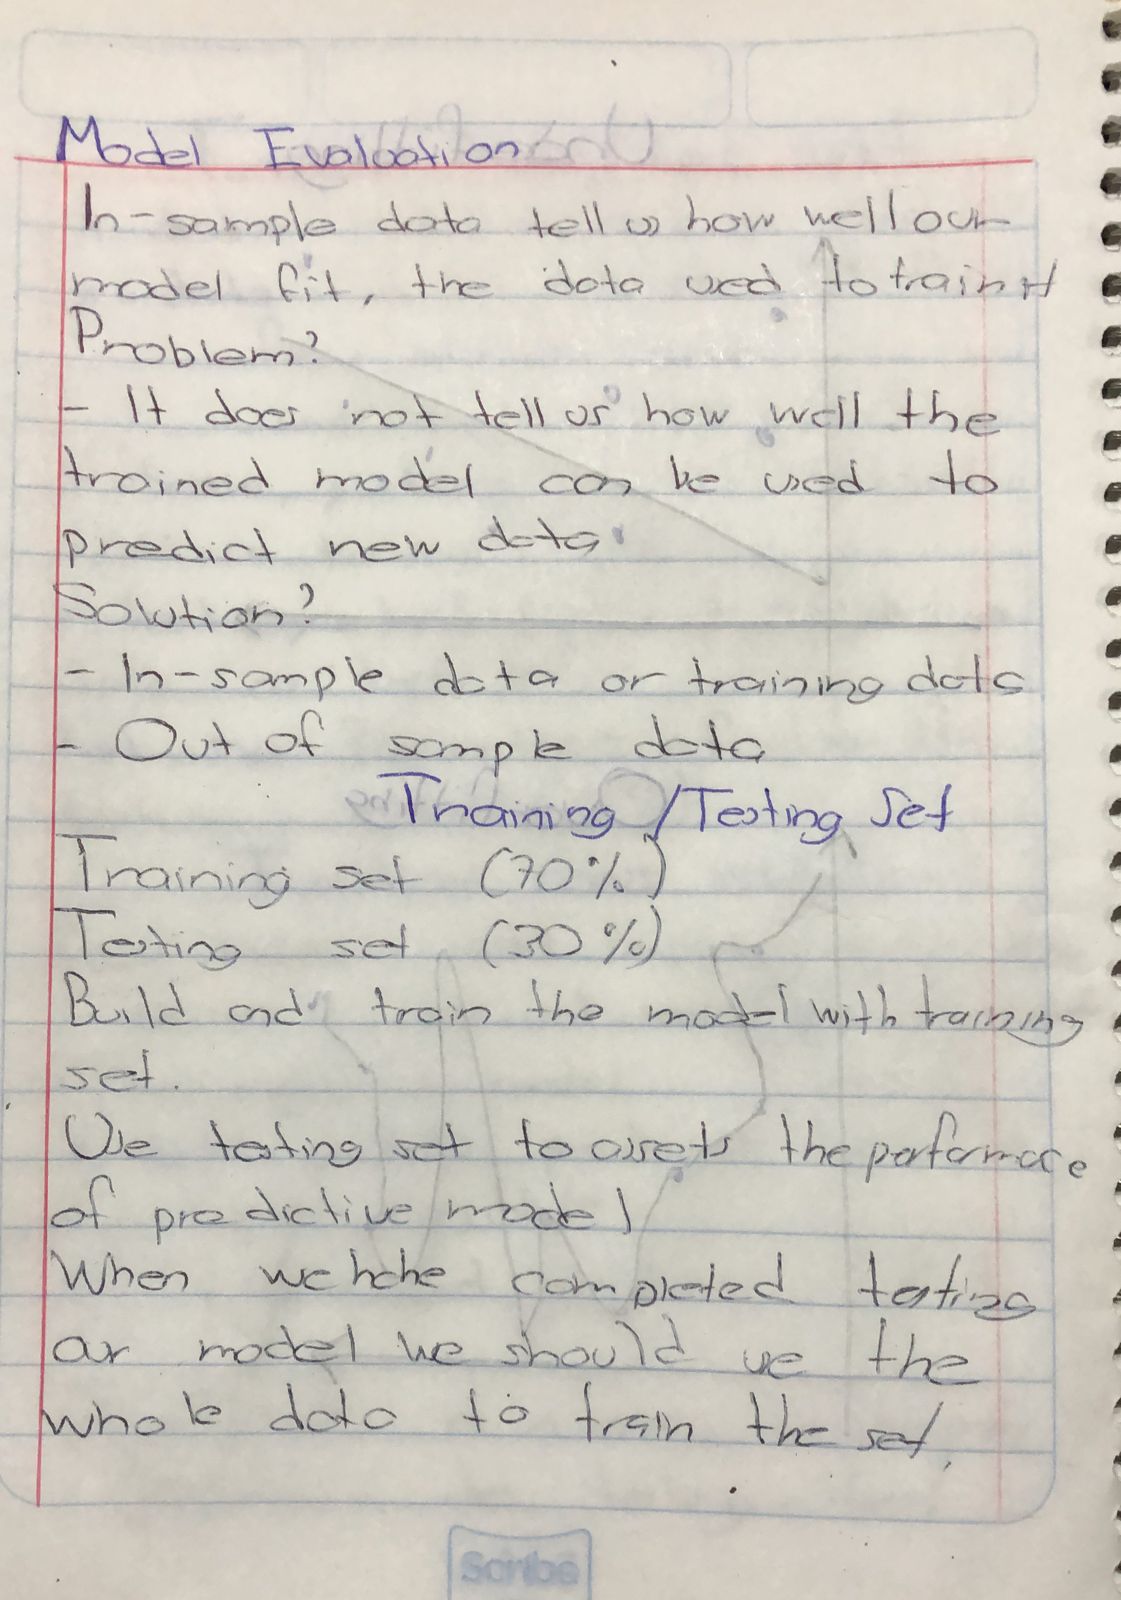 Model Evaluation
In-sample data tell us how well our
model fit, the data used to train it
Problem?
- It does not tell us how well the
trained model can be used to
predict new data
Solution?
- In-sample data or training data
- Out of sample data
Training / Testing Set
Training set (70%)
Testing set (30%)
Build and train the model with training
set.
Use testing set to assets the performace
of predictive model
When we completed testing
our model we should use the
whole data to train the set.
Scribe